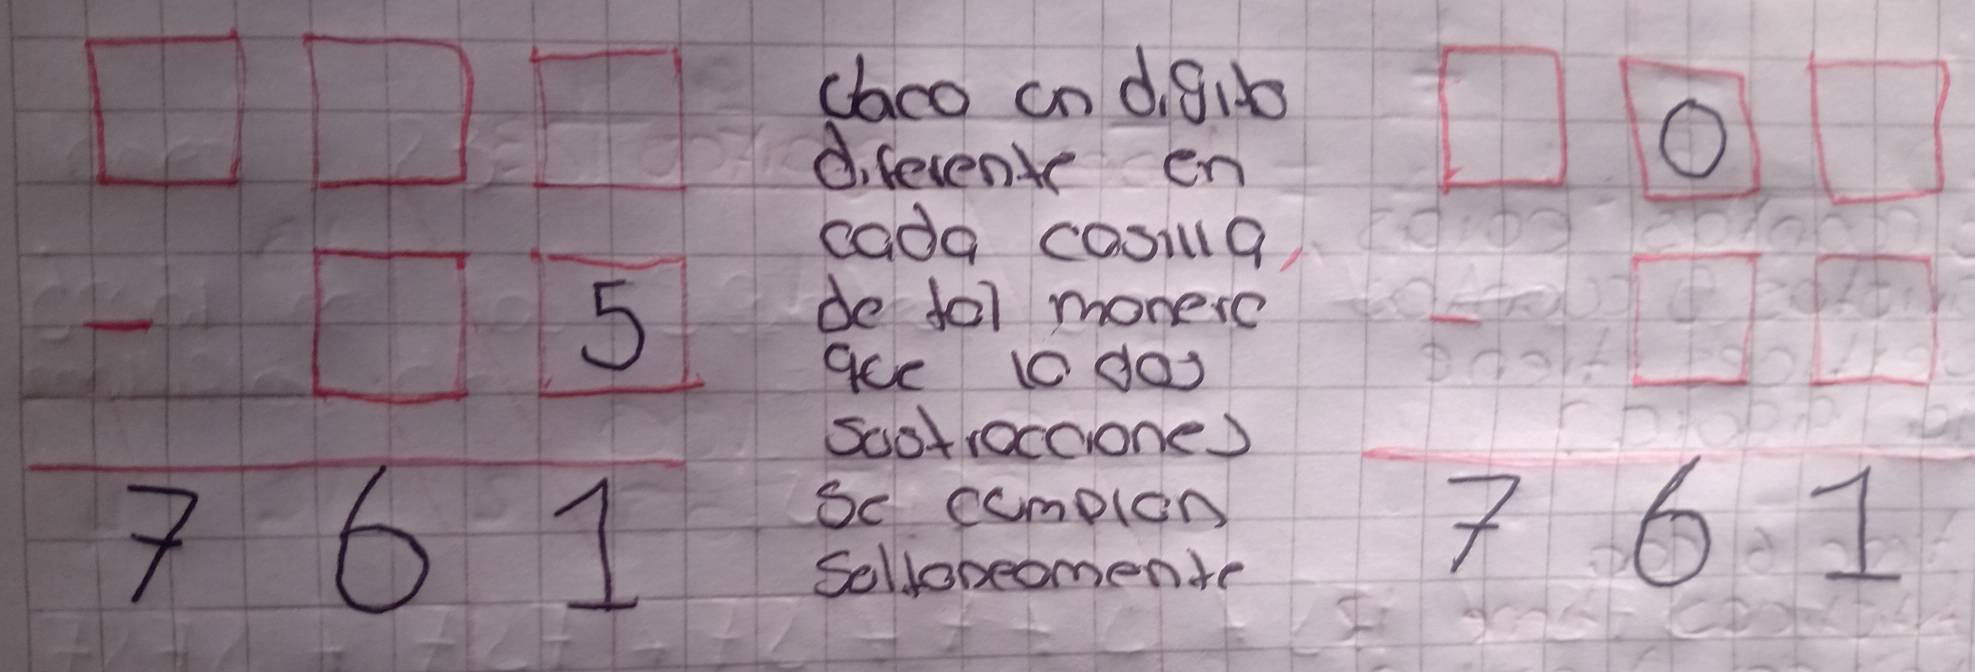 5
7 6 1
Ubaco un digito
diferente en
cada casilla,
de tal manera
que la dos
sustracciones
se cumplan
saltaneamente
0
7 6 1